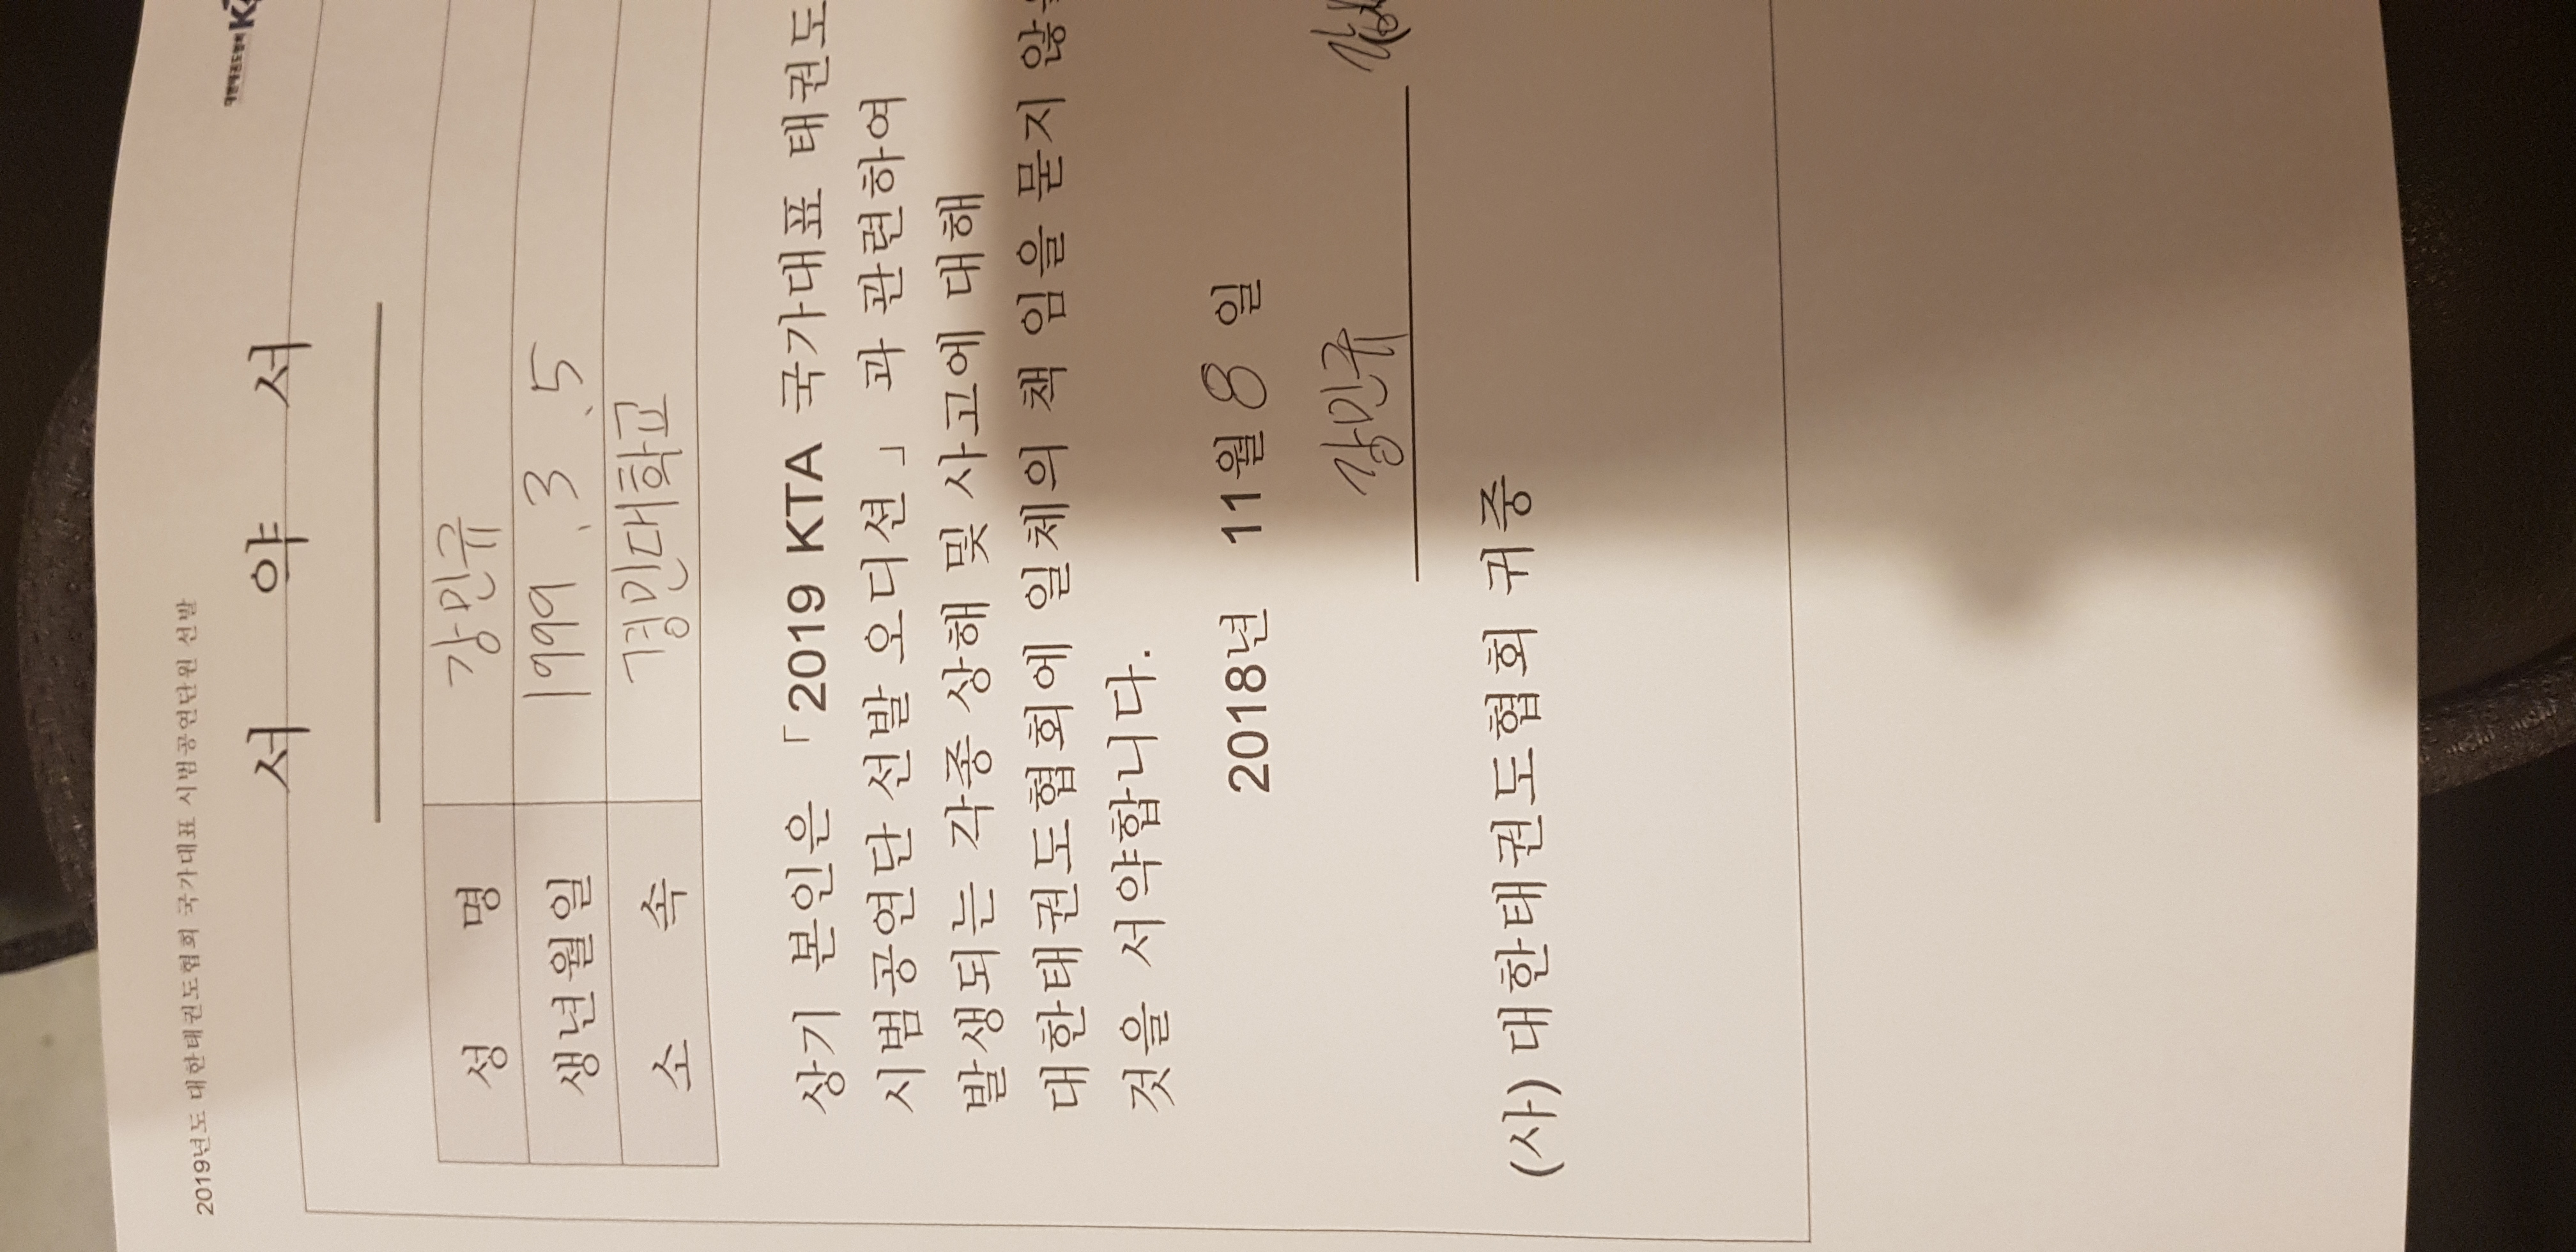 2019년도 대한태권도협회 국가대표 시범공연단원 선발
대한태권도협회
서 약 서
성 명 강민규
생년월일 1999.3.5
소 속 경민대학교
상기 본인은 「2019 KTA 국가대표 태권도
시범공연단 선발 오디션」과 관련하여
발생되는 각종 상해 및 사고에 대해
대한태권도협회에 일체의 책 임을 묻지 않을
것을 서약합니다.
2018년 11월 8 일
강민규
(사) 대한태권도협회 귀중